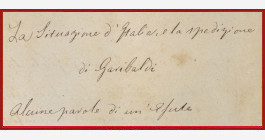 La Situazione d'Italia, e la spedizione
di Garibaldi
Alcune parole di un'